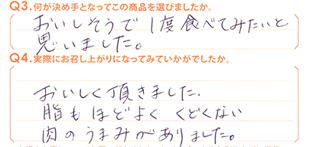 Q3.何が決め手となってこの商品を選びましたか。
おいしそうで1度食べてみたいと
思いました。
Q4.実際にお召し上がりになってみていかがでしたか。
おいしく頂きました.
脂もほどよく くどくない
肉のうまみがありました。